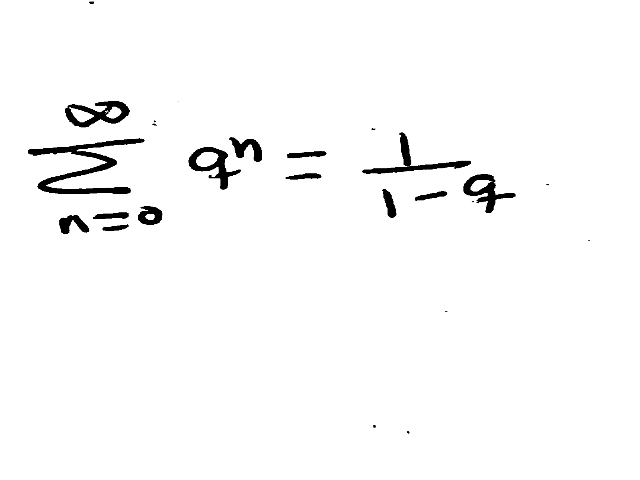 \sum_{n=0}^{\infty} q^n = \frac{1}{1-q}